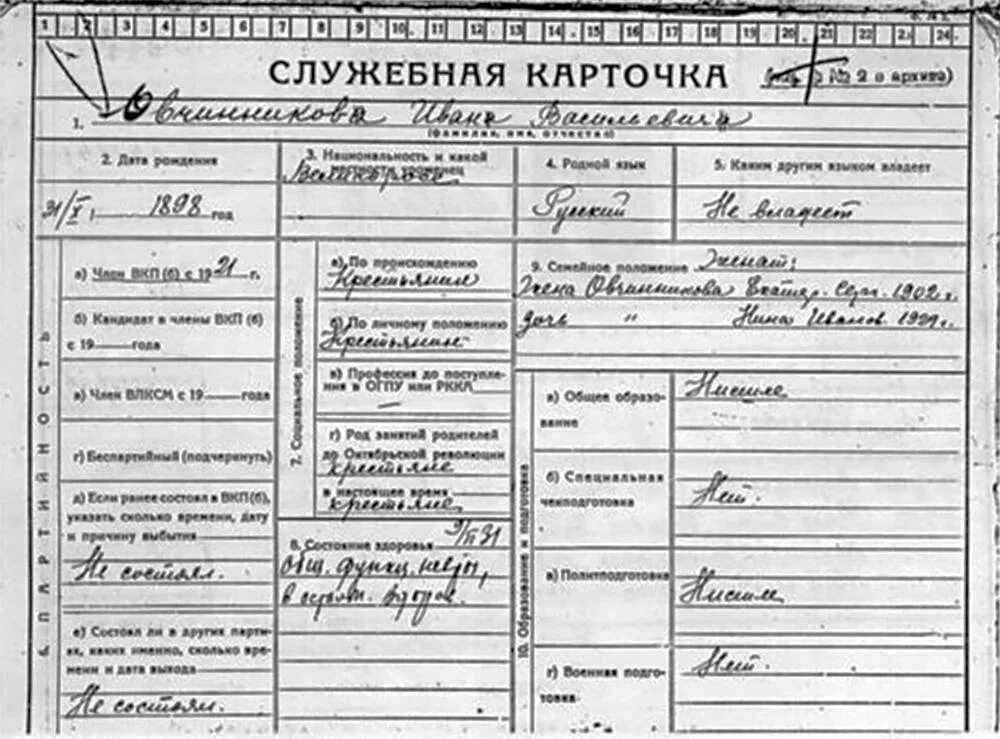 1 2 3 4 5 6 7 8 9 10 11 12 13 14 15 16 17 18 19 20 21 22 23 24
СЛУЖЕБНАЯ КАРТОЧКА
№ 2 в архиве)
1. Овчинникова Ивана Васильевича
(фамилия, имя, отчество)
2. Дата рождения
31/X 1898 год
3. Национальность и какой
Великоросс
4. Родной язык
Русский
5. Каким другим языком владеет
Не владеет
6. ПАРТИЙНОСТЬ
а) Член ВКП (б) с 1921 г.
б) Кандидат в члены ВКП (б)
с 19 года
в) Член ВЛКСМ с 19 года
г) Беспартийный (подчеркнуть)
д) Если ранее состоял в ВКП(б),
указать сколько времени, дату
и причину выбытия
Не состоял.
е) Состоял ли в других парти-
ях, каких именно, сколько вре-
мени и дата выхода
Не состоял.
7. Социальное положение
а) По происхождению
Крестьянин
б) По личному положению
Крестьянин
в) Профессия до поступле-
ния в ОГПУ или РККА
—
г) Род занятий родителей
до Октябрьской революции
крестьяне
в настоящее время
крестьяне
8. Состояние здоровья 31
общ. функц.
9. Семейное положение Женат:
Жена Овчинникова Екатер. Серг. 1902 г.
дочь " Нина Иванов. 1929 г.
10. Образование и подготовка
а) Общее образо-
вание
Низшее
б) Специальная
чекподготовка
Нет.
в) Политподготовка
Низшее
г) Военная подго-
товка
Нет.